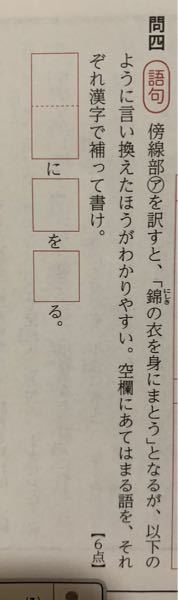 問四 語句 傍線部㋐を訳すと、「錦の衣を身にまとう」となるが、以下の
にしき
ように言い換えたほうがわかりやすい。空欄にあてはまる語を、それ
ぞれ漢字で補って書け。
【6点】
に を る。